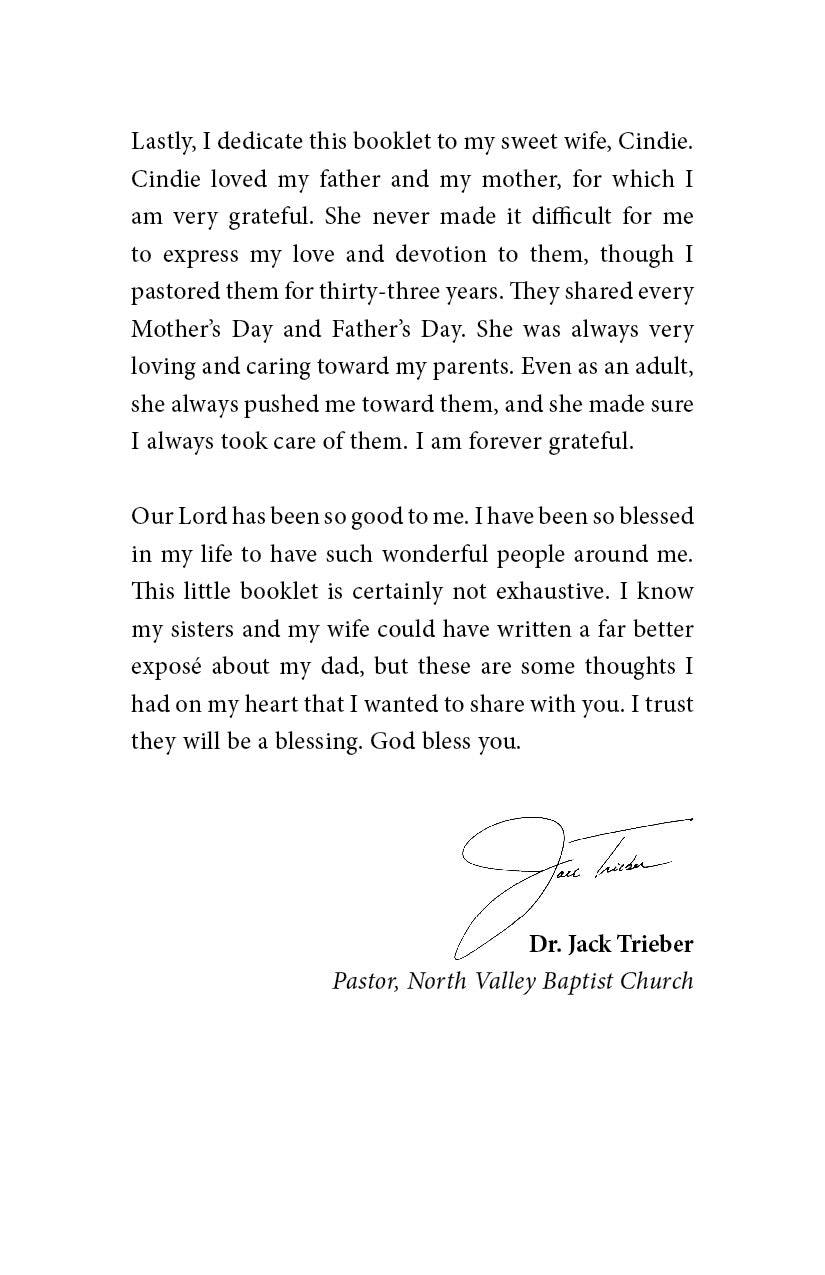 Lastly, I dedicate this booklet to my sweet wife, Cindie.
Cindie loved my father and my mother, for which I
am very grateful. She never made it difficult for me
to express my love and devotion to them, though I
pastored them for thirty-three years. They shared every
Mother’s Day and Father’s Day. She was always very
loving and caring toward my parents. Even as an adult,
she always pushed me toward them, and she made sure
I always took care of them. I am forever grateful.
Our Lord has been so good to me. I have been so blessed
in my life to have such wonderful people around me.
This little booklet is certainly not exhaustive. I know
my sisters and my wife could have written a far better
exposé about my dad, but these are some thoughts I
had on my heart that I wanted to share with you. I trust
they will be a blessing. God bless you.
Jack Trieber
Dr. Jack Trieber
Pastor, North Valley Baptist Church